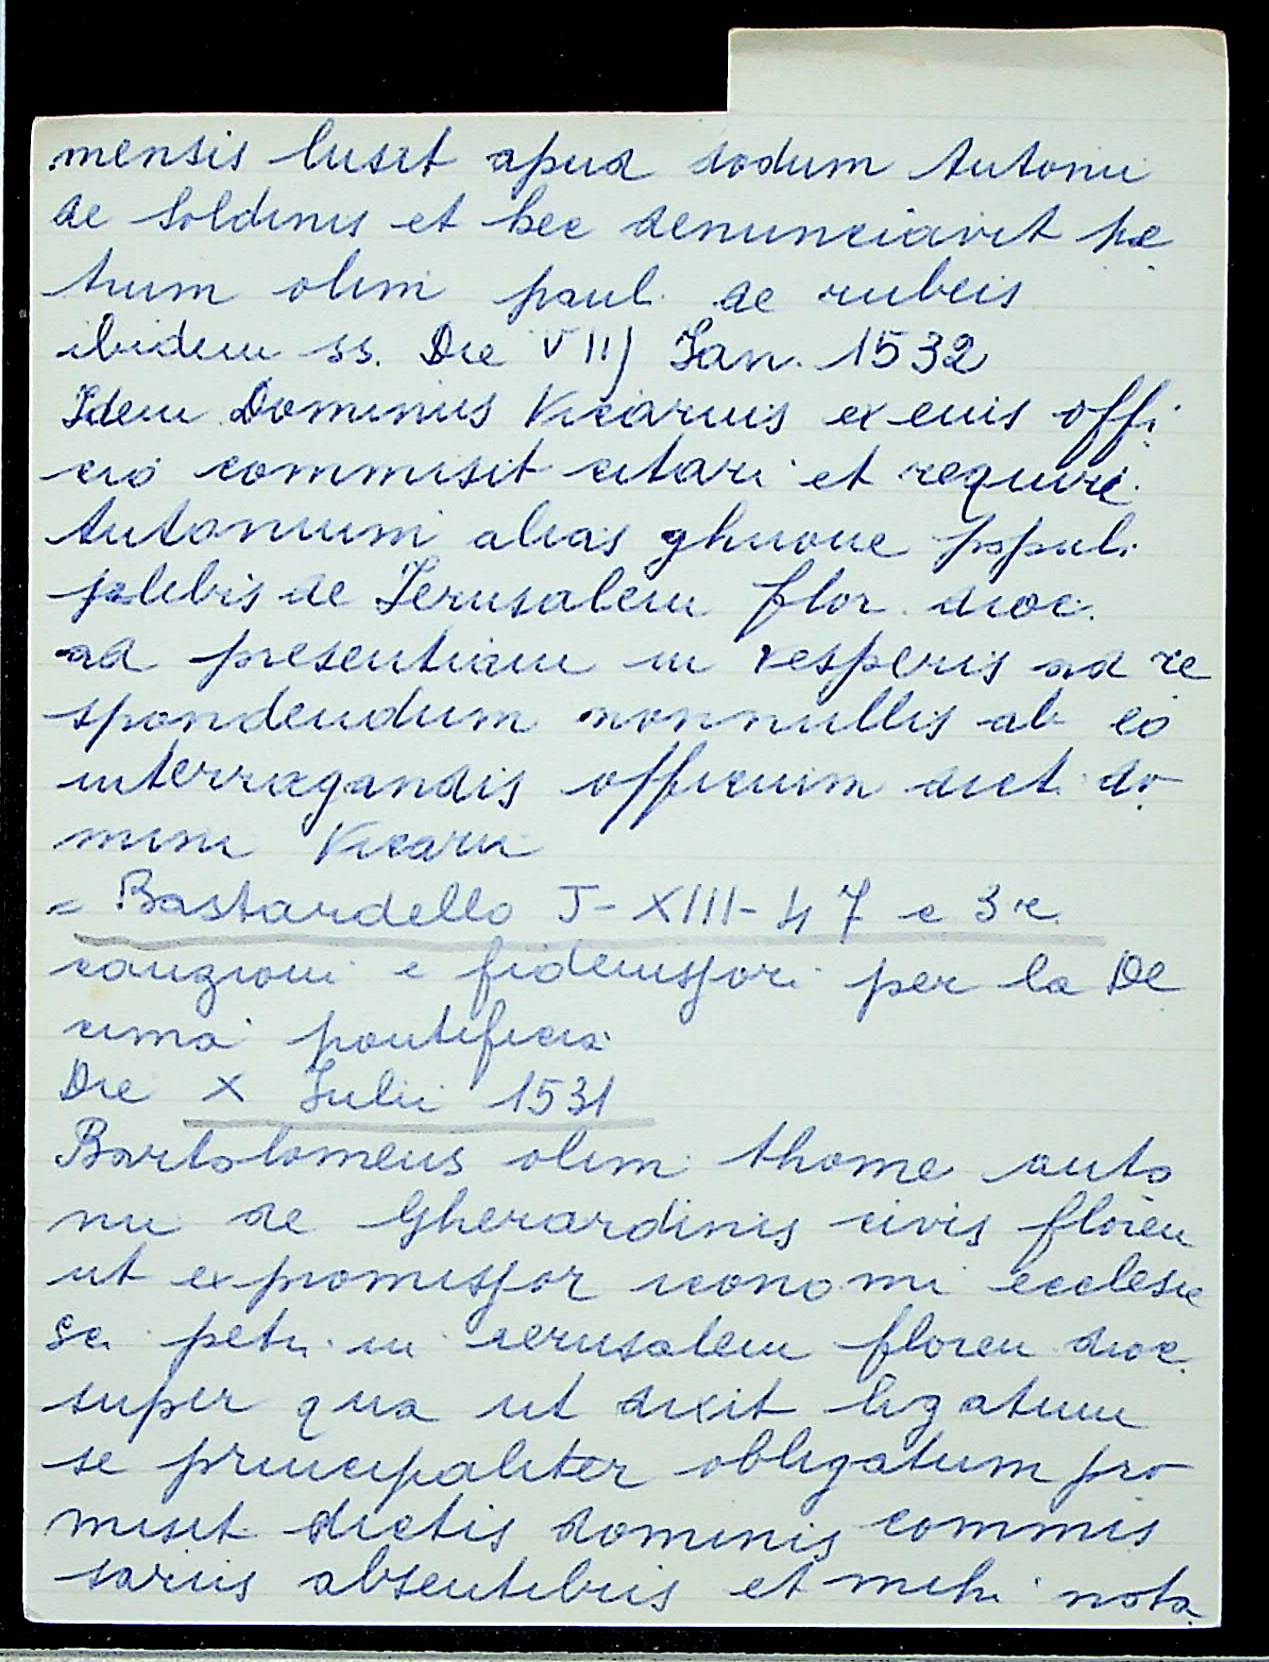 mensis luset apud dodum Antonii
de Soldinis et hec denunciavit pe
trum olim paul. de rubeis
ibidem ss. Die VIIJ Jan. 1532
Idem Dominus Vicarius ex euis offi
cio commisit citari et requiri
Antonium alias ghuoue populi
plebis de Jerusalem flor. dioc.
ad presentiam in vesperis ad re
spondendum nonnullis ab eo
interragandis officium dict. do
mini Vicarii
= Bastardello J-XIII-47 c 3r.
cauzioni e fideiussori per la De
cima pontificia
Die X Julii 1531
Bartolomeus olim thome anto
nii de Gherardinis civis floren
ut expromissor iconomi ecclesie
Sci petri in ierusalem floren dioc.
super qua ut dixit ligatum
se principaliter obligatum pro
misit dictis dominis commis
sariis absentibus et mihi nota